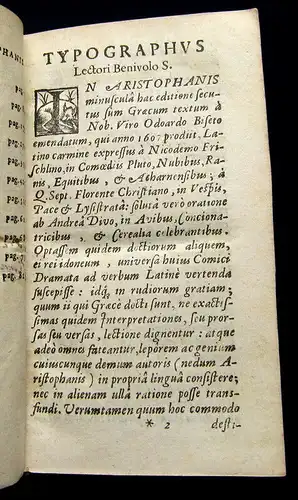 PHANIS
pag.
pag.
pag.
pag.
pag.
TYPOGRAPHVS
Lectori Benivolo S.
IN ARISTOPHANIS
minusculâ hac editione secu-
tus sum Græcum textum à
Nob. Viro Odoardo Biseto
emendatum, qui anno 1607 prodiit, La-
tino carmine expressus à Nicodemo Fri-
schlino, in Comœdiis Pluto, Nubibus, Ra-
nis, Equitibus, & Acharnensibus; à
Q. Sept. Florente Christiano, in Vespis,
Pace & Lysistratâ: solutâ verò oratione
ab Andreâ Divo, in Avibus, Conciona-
tricibus, & Cerealia celebrantibus.
Optassem quidem doctiorum aliquem,
ei rei idoneum, universa hujus Comici
Dramata ad verbum Latinè vertenda
suscepisse: idq; in rudiorum gratiam;
quum ii qui Græcè docti sunt, ne exactis-
simas quidem Interpretationes, seu pror-
sas seu versas, lectione dignentur: atque
adeò omnes fateantur, leporem ac genium
cuiuscunque demum autoris (nedum A-
ristophanis) in propriâ linguâ consistere;
nec in alienam ullâ ratione posse trans-
fundi. Verumtamen quum hoc commodo
* 2
desti-